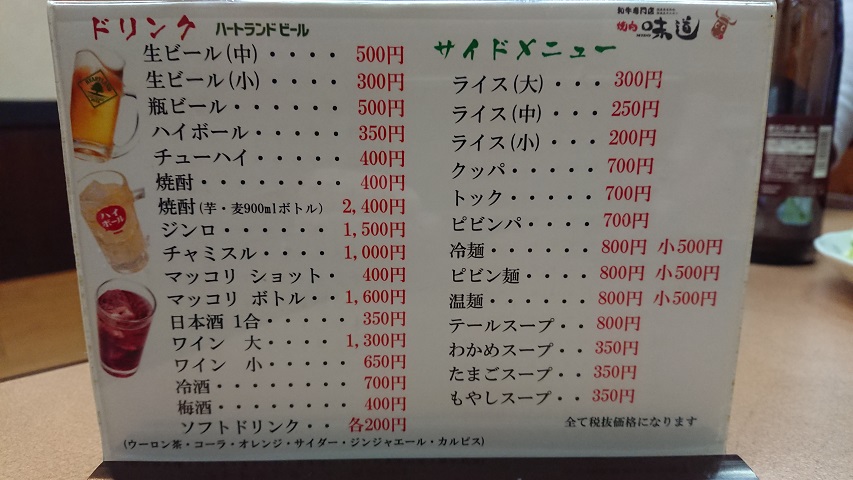 ドリンク ハートランドビール
生ビール(中)・・・・ 500円
生ビール(小)・・・・ 300円
瓶ビール・・・・・・ 500円
ハイボール・・・・・ 350円
チューハイ・・・・・ 400円
焼酎・・・・・・・・ 400円
焼酎(芋・麦900mlボトル) 2,400円
ジンロ・・・・・・ 1,500円
チャミスル・・・・ 1,000円
マッコリ ショット・ 400円
マッコリ ボトル・・ 1,600円
日本酒 1合・・・・・ 350円
ワイン 大・・・・ 1,300円
ワイン 小・・・・ 650円
冷酒・・・・・・・ 700円
梅酒・・・・・・・ 400円
ソフトドリンク・・ 各200円
(ウーロン茶・コーラ・オレンジ・サイダー・ジンジャエール・カルピス)
ハイボール
和牛専門店
焼肉 味道
サイドメニュー
ライス(大)・・・ 300円
ライス(中)・・・ 250円
ライス(小)・・・ 200円
クッパ・・・・・ 700円
トック・・・・・ 700円
ピビンパ・・・・ 700円
冷麺・・・・・ 800円 小500円
ピビン麺・・・・ 800円 小500円
温麺・・・・・ 800円 小500円
テールスープ・・ 800円
わかめスープ・・ 350円
たまごスープ・・ 350円
もやしスープ・・ 350円
全て税抜価格になります